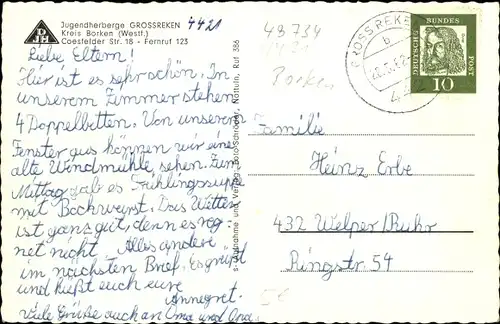 Jugendherberge GROSSREKEN
Kreis Borken (Westf.)
Coesfelder Str. 18 - Fernruf 123
4421
Liebe Eltern!
Hier ist es sehr schön. In
unserem Zimmer stehen
4 Doppelbetten. Von unserem
Fenster aus können wir eine
alte Windmühle sehen. Zum
Mittag gab es Frühlingssuppe
mit Bockwurst. Das Wetter
ist ganz gut, denn es reg-
net nicht. Alles andere
im nächsten Brief. Es grüßt
und küßt euch eure
Annegret.
Viele Grüße auch an Oma und Opa.
Foto-Schröder, Nottuln, Ruf 356
48734
Borken
GROSSREKEN
b
DEUTSCHE
BUNDES
POST
10
Familie
Heinz Erbe
432 Welper/Ruhr
Ringstr. 54